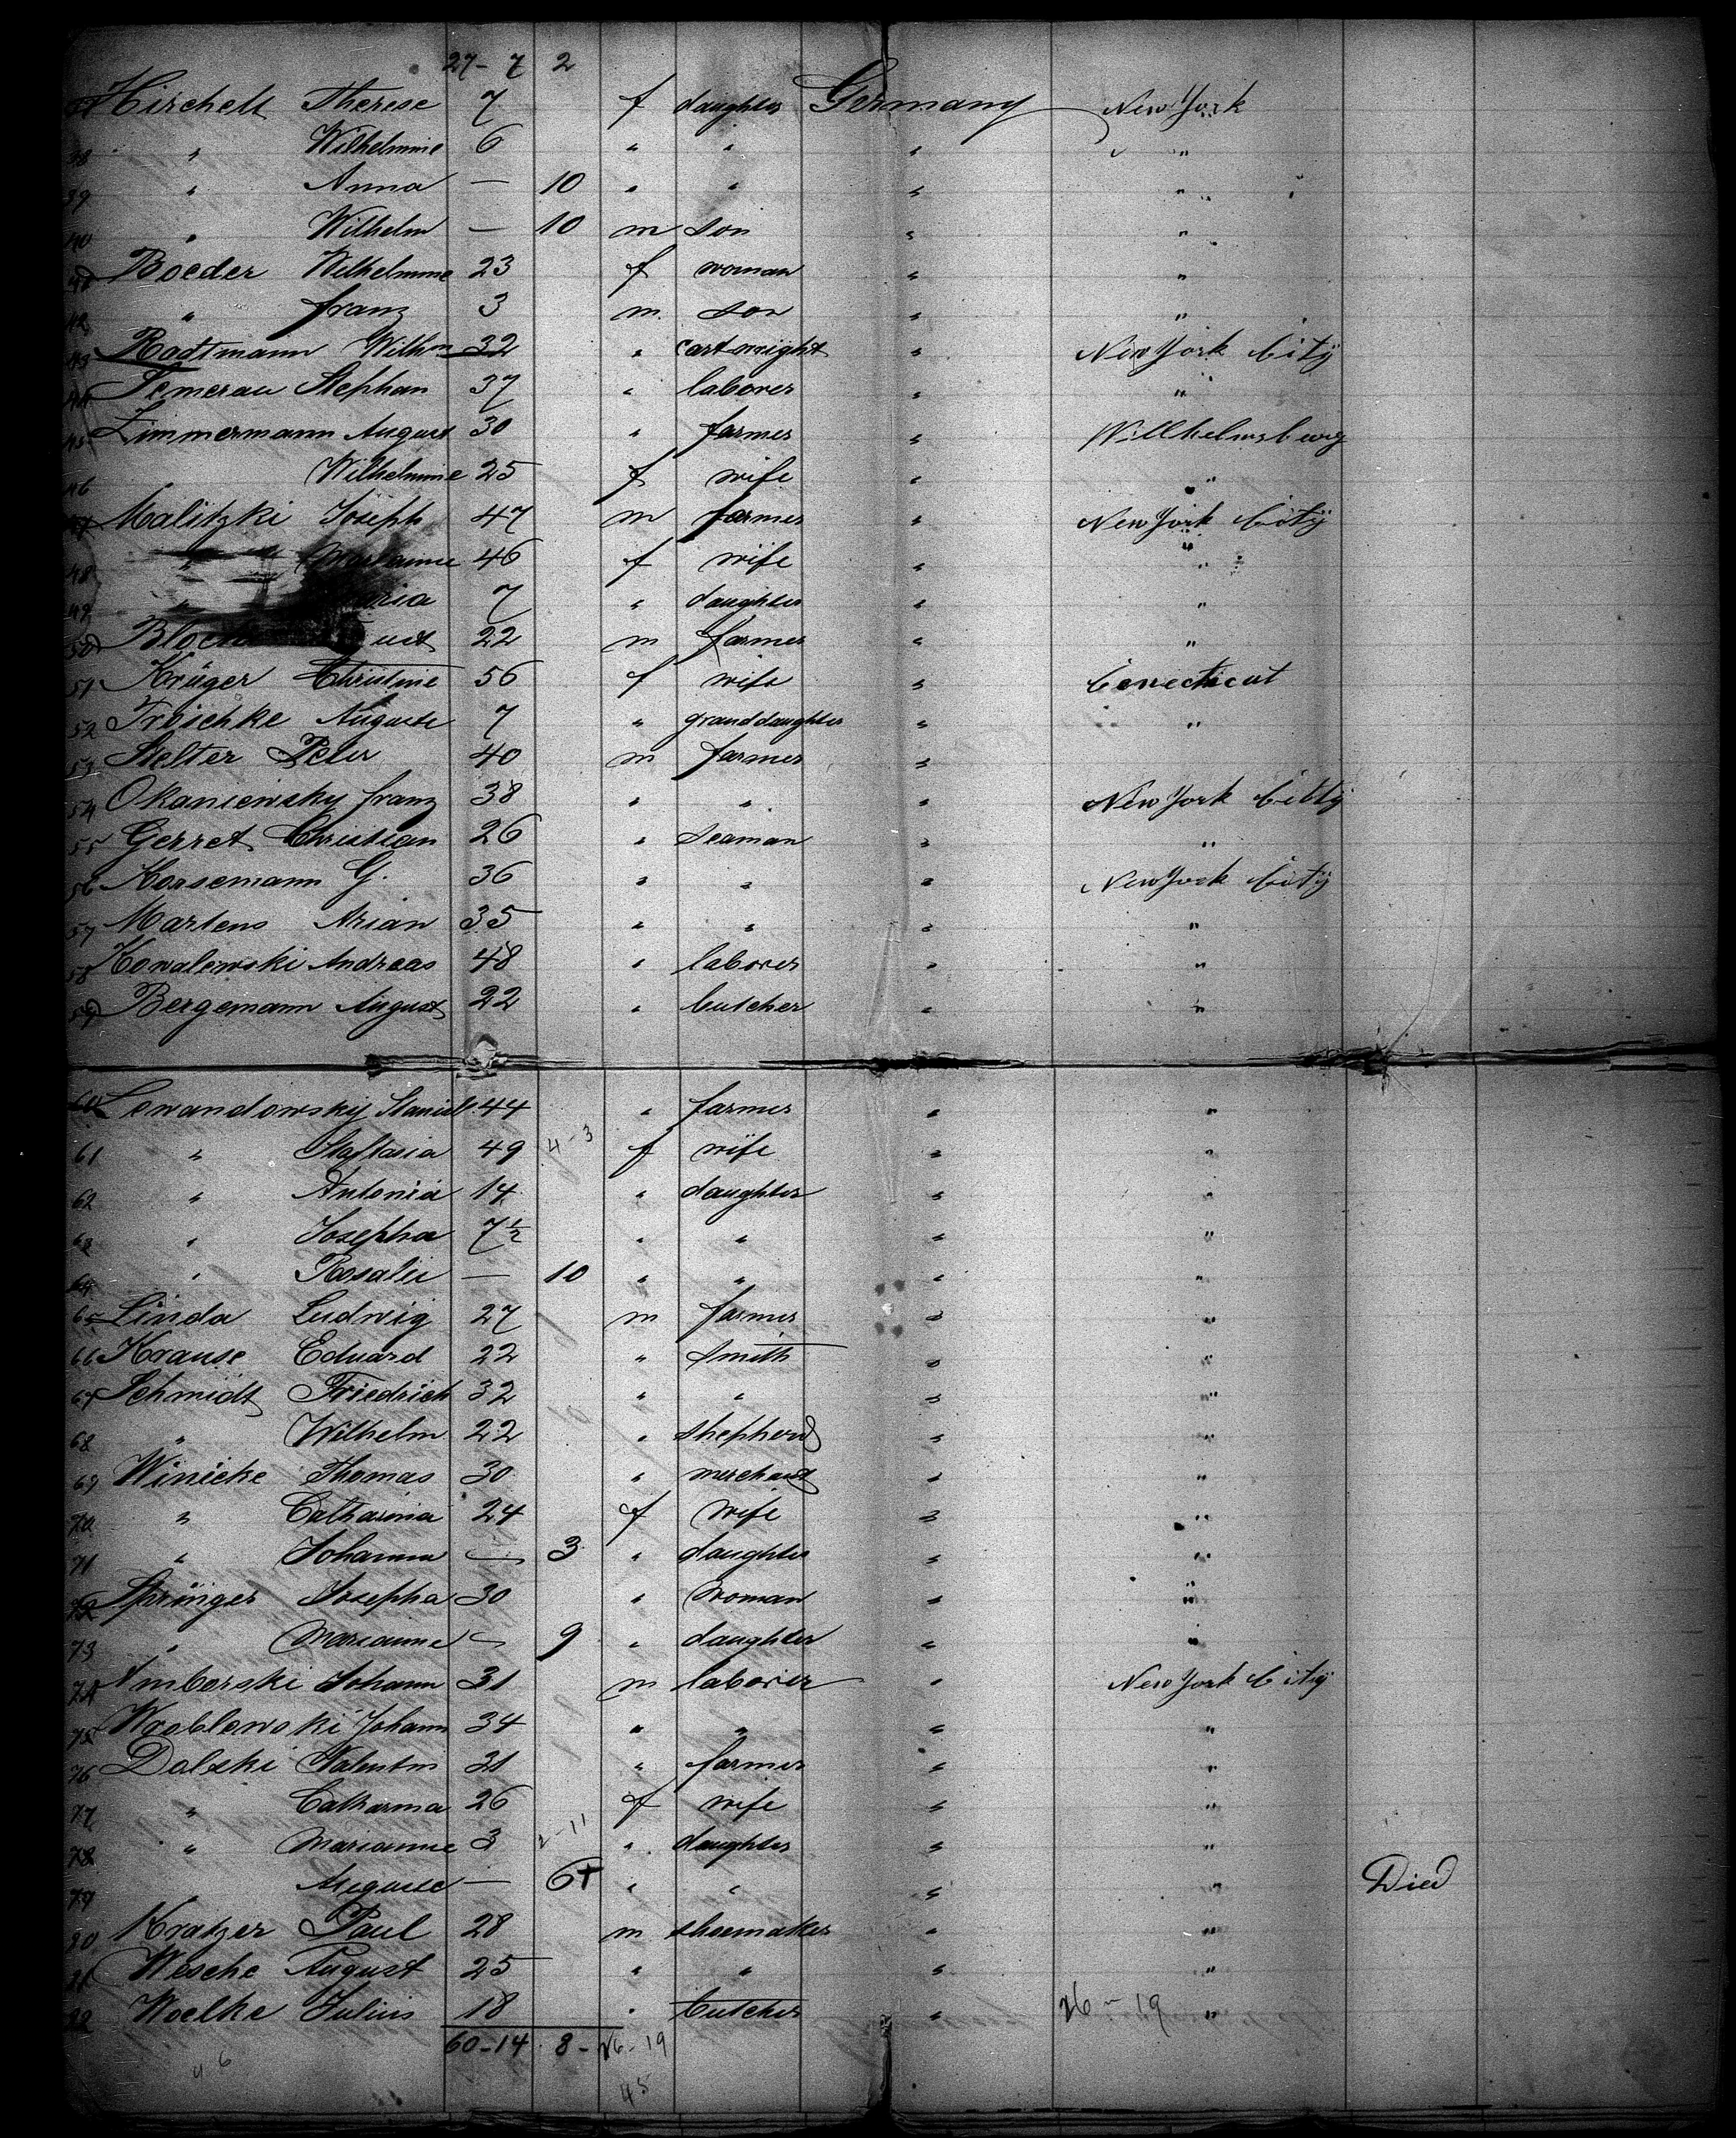 27- 7 2
37 Hirchelt Therese 7 f daughter Germany New York
38 " Wilhelmine 6 " " " "
39 " Anna — 10 " " " "
40 " Wilhelm — 10 m son " "
41 Boeder Wilhelmine 23 f woman " "
42 " franz 3 m. son " "
43 Radtmann Wilhm 32 " cartwright " New York City
44 Temerau Stephan 37 " laborer " "
45 Zimmermann August 30 " farmer " Willhelmsburg
46 " Wilhelmine 25 f wife " "
47 Malitzki Joseph 47 m farmer " New York City
48 " Marianne 46 f wife " "
49 " 7 " daughter " "
50 22 m farmer " "
51 Krüger Christine 56 f wife " Conecticut
52 Troschke Auguste 7 " granddaughter " "
53 Stelter Peter 40 m farmer "
54 Okaniewsky franz 38 " " " New York Citty
55 Gerret Christian 26 " seaman " "
56 Horsemann G. 36 " " " New York City
57 Martens Arian 35 " " " "
58 Kowalewski Andreas 48 " laborer " "
59 Bergemann August 22 " butcher " "
60 Lewandowsky Stanisl 44 " farmer " "
61 " Staftasia 49 4-3 f wife " "
62 " Antonia 14 " daughter " "
63 " Josepha 7½ " " " "
64 " Rosalie — 10 " " " "
65 Linda Ludwig 27 m farmer " "
66 Krause Eduard 22 " smith " "
67 Schmidt Friedrich 32 " " " "
68 " Wilhelm 22 " shepherd " "
69 Winicke Thomas 30 " merchant " "
70 " Catharina 24 f wife " "
71 " Johanna — 3 " daughter " "
72 Springer Josepha 30 " woman " "
73 " Marianne — 9 " daughter " "
74 Amborski Johann 31 m laborer " New York City
75 Wroblewski Johann 34 " " " "
76 Dolski Valentin 31 " farmer " "
77 " Catharina 26 f wife " "
78 " Marianne 3 2-11 " daughter " "
79 " Auguste — 6+ " " " " Died
80 Kratzer Paul 28 m shoemaker " "
81 Wesche August 25 " " " "
82 Woelke Julius 18 " butcher " 26-19 "
60-14 8- 26-19
46
45